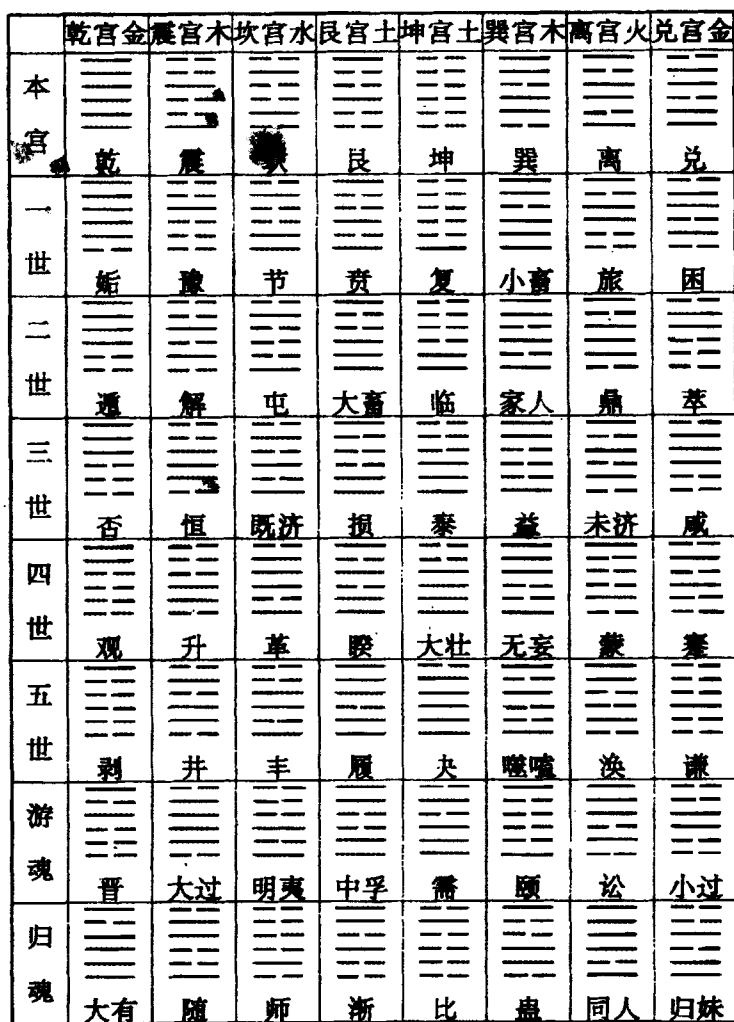 乾宫金 震宫木 坎宫水 艮宫土 坤宫土 巽宫木 离宫火 兑宫金
本宫 乾 震 艮 坤 巽 离 兑
一世 姤 豫 节 贲 复 小畜 旅 困
二世 遁 解 屯 大畜 临 家人 鼎 萃
三世 否 恒 既济 损 泰 益 未济 咸
四世 观 升 革 睽 大壮 无妄 蒙 蹇
五世 剥 井 丰 履 夬 噬嗑 涣 谦
游魂 晋 大过 明夷 中孚 需 颐 讼 小过
归魂 大有 随 师 渐 比 蛊 同人 归妹